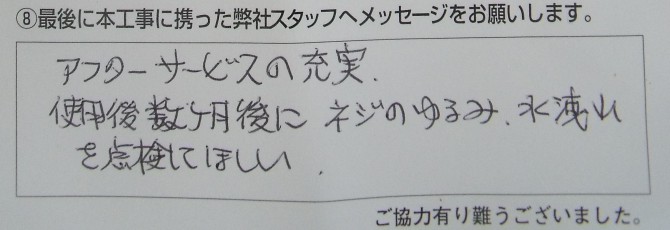 ⑧最後に本工事に携った弊社スタッフへメッセージをお願いします。
アフターサービスの充実.
使用後数ヶ月後に ネジのゆるみ、水洩れ
を点検してほしい.
ご協力有り難うございました。